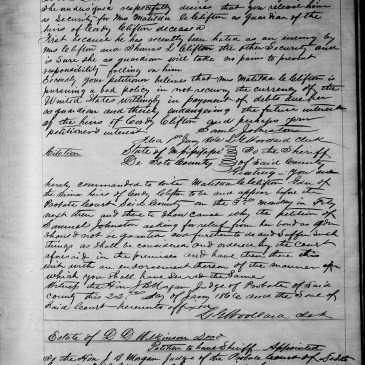 The undersigned respectfully desires that you release him
as security for Mrs Matilda C Clifton as guardian of the
heirs of Cordy Clifton deceased
First because he has recently been hated as an enemy by
Mrs Clifton and Thomas L Clifton the other Security and
is sure she as guardian will take no pains to prevent
responsibility falling on him
Secondly your petitioner believes that Mrs Matilda C Clifton is
pursuing a bad policy in not receiving the currency of the
United States willingly in payment of debts due her as
guardian and thereby endangering the future interest
of the heirs of Cordy Clifton and perhaps your
petitioners interest Saml Johnston
Jany Woodward Clerk
Citation State of Mississippi To the Sheriff
De Soto County of Said County
Greeting You are
hereby commanded to cite Matilda C Clifton Gdn of
the minor heirs of Cordy Clifton to be and appear before the
Probate Court Said County on the 3rd monday in Feby
next then and there to show cause why the petition of
Samuel Johnston asking for relief from her bond as Gdn
should not be granted and further to do and suffer such
things as shall be considered and ordered by the Court
aforesaid in the premises and have then there this
writ with an endorsement thereon of the manner in
which you shall have served the Same
Witness the Hon J B Morgan Judge of Probate of Said
County this 22nd day of Jany and the Seal of
Said Court hereunto affixed
Woodward Clk
Estate of D D Wilkinson Decd
Petition to have Sheriff Appointed
To the Hon J B Morgan Judge of the Probate Court of DeSoto